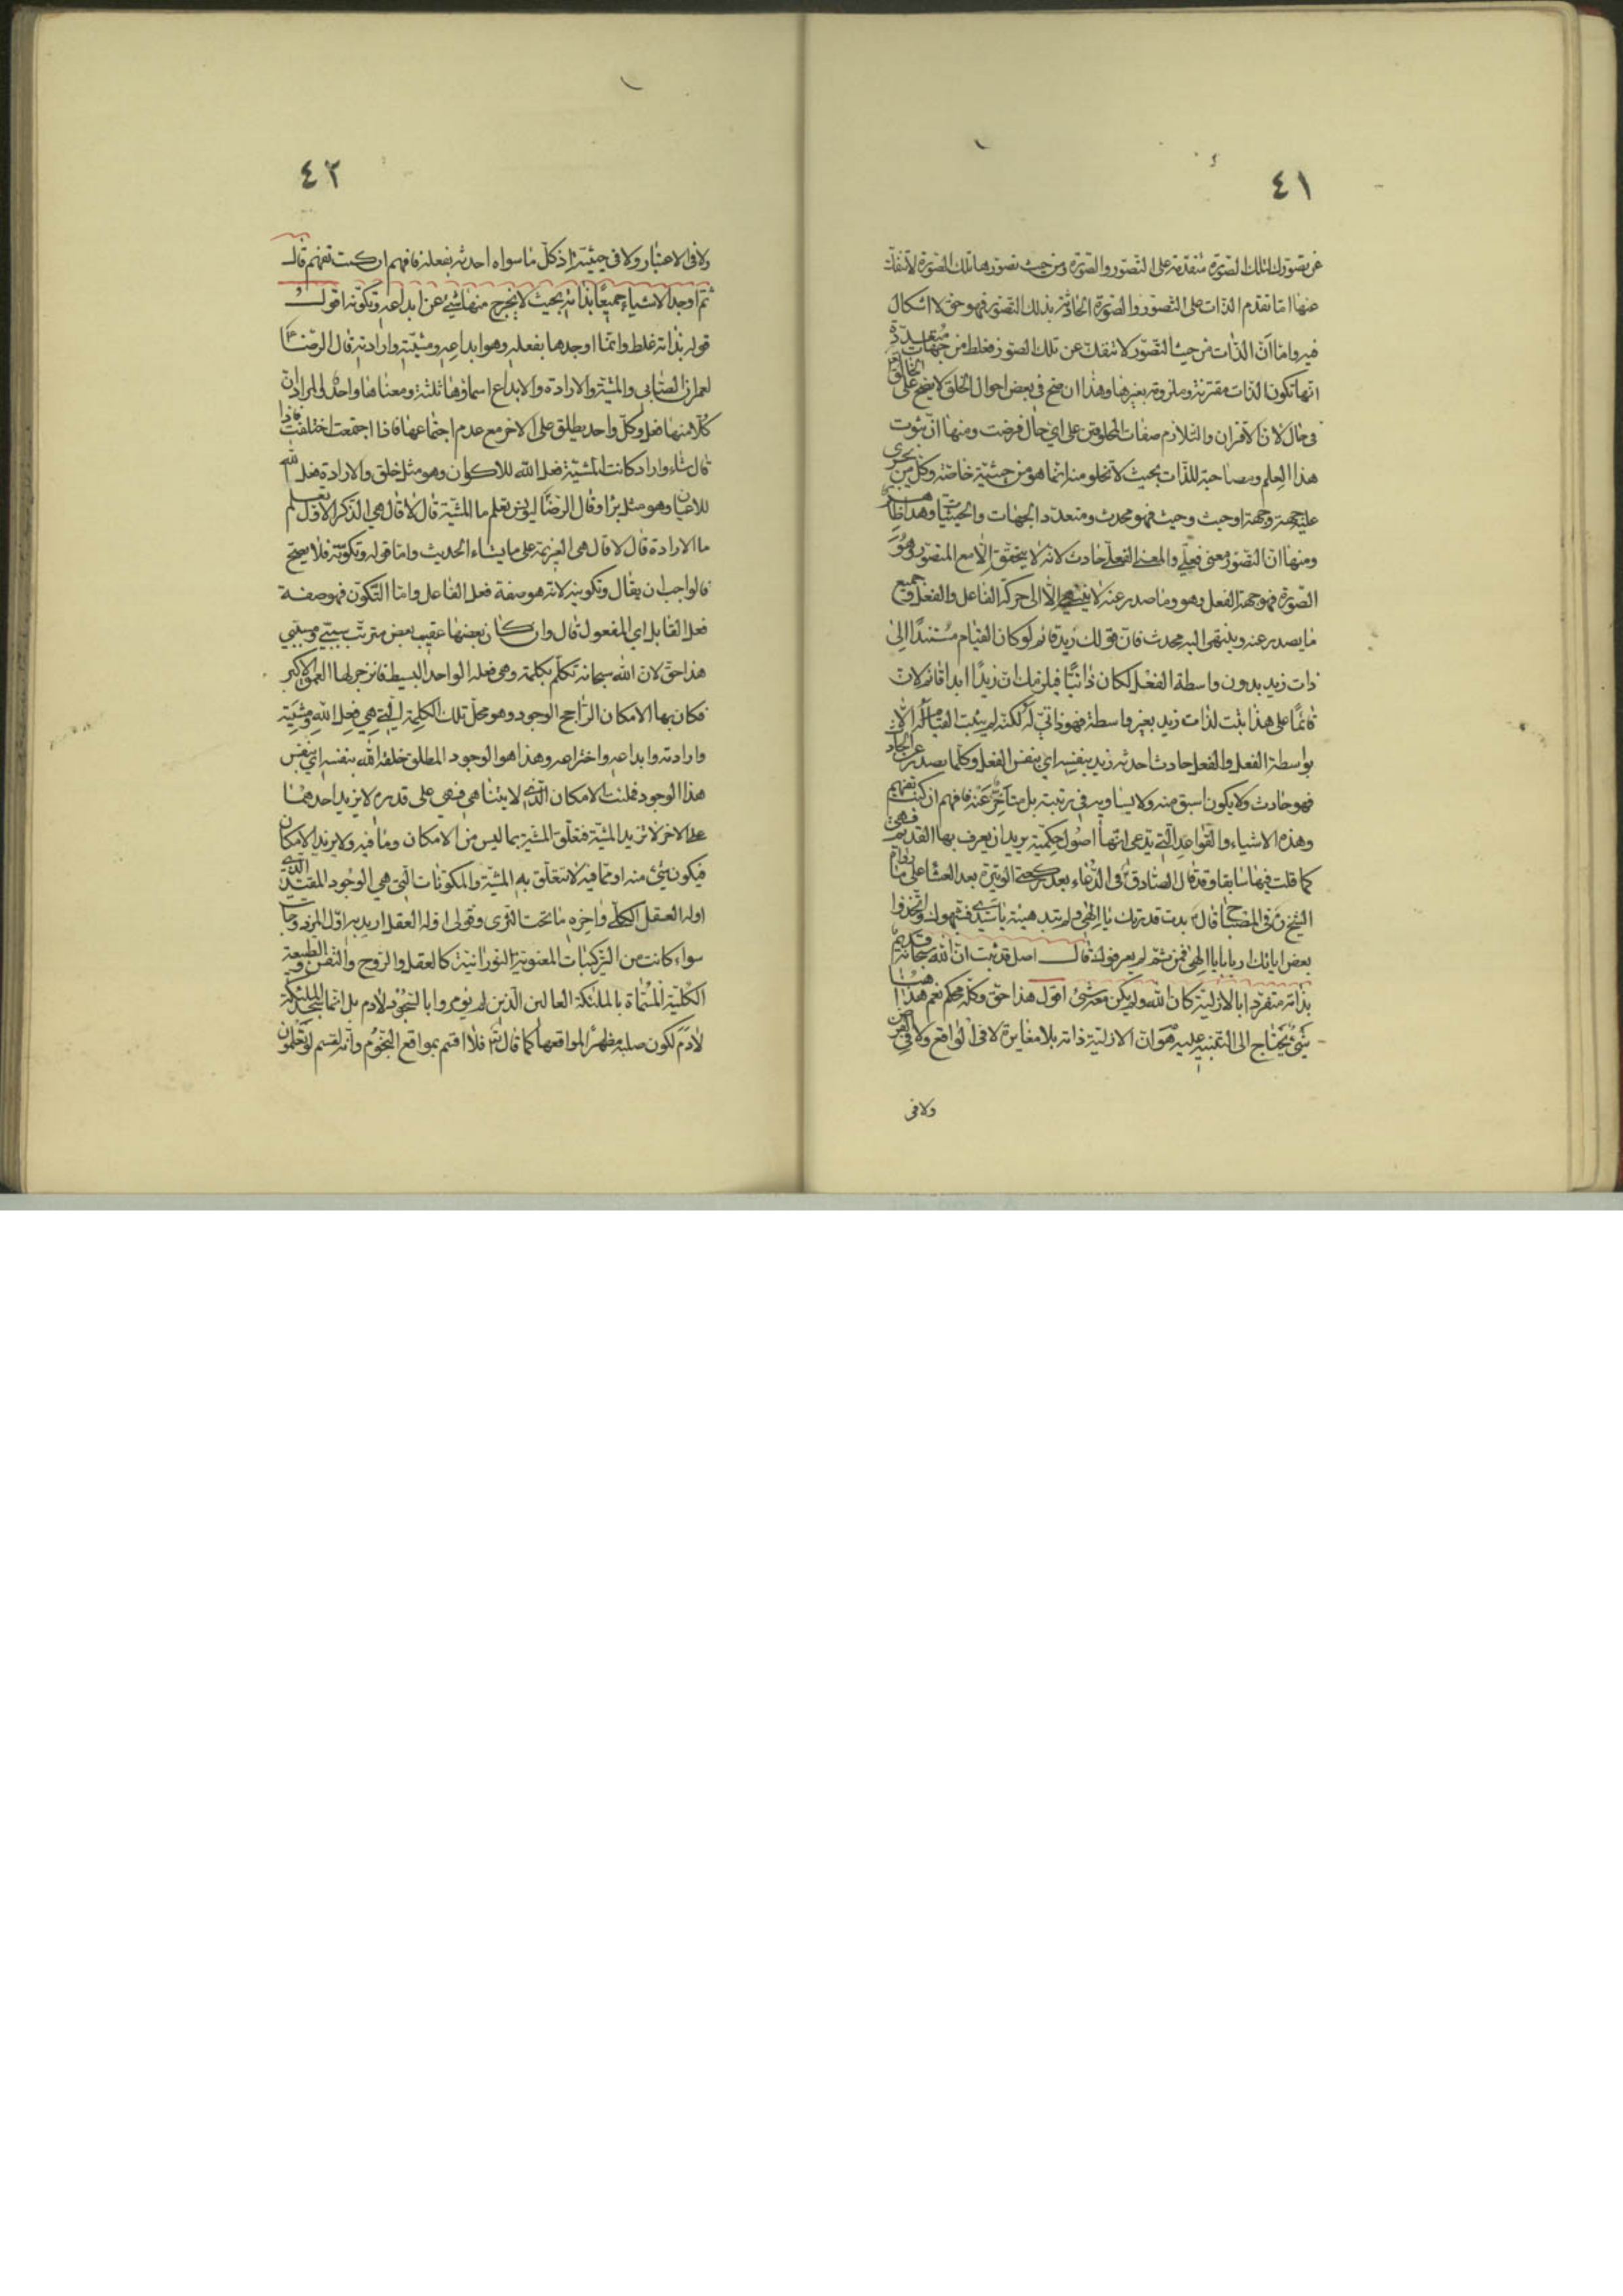 ٤١
عن تصورك لتلك الصورة متقدمة على التصور والصورة ومن حيث تصورها تلك الصورة لا تنفك
عنها اما تقدم الذات على التصور والصورة الحادثة بذلك التصور فهو حق لا اشكال
فيه واما ان الذات من حيث التصور لا تنفك عن تلك الصور فغلط من جهات متعددة
انها تكون الذات مقترنة وملزومة بغيرها وهذا ان صح في بعض احوال الخلق لا يصح على الخالق
في حال لان الاقتران والتلازم صفات المخلوقين على اي حال فرضت ومنها ان ثبوت
هذا العلم ومصاحبة للذات بحيث لا تخلو منه انما هو من حيثية خاصة وكل من يجرى
عليه جهة وجهة او حيث وحيث فهو محدث ومتعدد الجهات والحيثيات وهذا ظاهر
ومنها ان التصور معنى فعلي والمعنى الفعلي حادث لانه لا يتحقق الا مع المتصور وهو
الصورة فهو جهة الفعل وهو وما صدر عنه لا ينتهي الا الى حركة الفاعل والفعل وجميع
ما يصدر عنه وينتهى اليه محدث فان قولك زيد قائم لو كان القيام مستندا الى
ذات زيد بدون واسطة الفعل لكان ذاتيا فيلزمك ان زيدا ابدا قائم لان
قائما على هذا يثبت لذات زيد بغير واسطة فهو ذاتي له لكنه لم يثبت القيام له الا
بواسطة الفعل والفعل حادث احدثه زيد بنفسه اي بنفس الفعل وكلما يصدر عن الحادث
فهو حادث ولا يكون اسبق منه ولا يساويه في رتبته بل متاخر عنه فافهم ان كنت تفهم
وهذه الاشياء والقواعد التي يدعى انها اصول حكمية يريد ان يعرف بها القديم فهي
كما قلت فيها سابقا وقد قال الصادق في الدعاء بعد ركعتي الوتيرة بعد العشا على ما رواه
الشيخ في المصباح قال بدت قدرتك يا الهي ولم تبد هيئة يا سيدي فشبهوك واتخذوا
بعض اياتك اربابا يا الهي فمن ثم لم يعرفوك قال اصل قد ثبت ان الله سبحانه قديم
بذاته متفرد بالازلية كان الله ولم يكن معه شئ اقول هذا حق وكله محكم نعم هنا
شيء يحتاج الى التنبيه عليه هو ان الازلية ذاته بلا مغايرة لا في الواقع ولا في الفرض
ولا في
٤٢
ولا في الاعتبار ولا في حيثية اذ كل ما سواه احدثه بفعله فافهم ان كنت تفهم قال
ثم اوجد الاشياء جميعا بذاته بحيث لا يخرج منها شئ عن ابداعه وتكونه اقول
قوله بذاته غلط وانما اوجدها بفعله وهو ابداعه ومشيته وارادته قال الرضا
لعمران الصابي والمشية والارادة والابداع اسماؤها ثلثة ومعناها واحد والمراد ان
كلا منها فعل وكل واحد يطلق على الاخر مع عدم اجتماعها فاذا اجتمعت اختلفت فاذا
قال شاء واراد كانت المشية فعل الله للاكوان وهو مثل خلق والارادة فعل الله
للاعيان وهو مثل برا وقال الرضا ليونس تعلم ما المشية قال لا قال هي الذكر الاول تعلم
ما الارادة قال لا قال هي العزيمة على ما يشاء الحديث واما قوله وتكونه فلا يصح
فالواجب ان يقال وتكوينه لانه هو صفة فعل الفاعل واما التكون فهو صفة
فعل القابل اي المفعول قال وان كان بعضها عقيب بعض مترتب سببي ومسببي
هذا حق لان الله سبحانه تكلم بكلمة وهي فعله الواحد البسيط فانزجر لها العمق الاكبر
فكان بها الامكان الراجح الوجود وهو محل تلك الكلمة التي هي فعل الله ومشيته
وارادته وابداعه واختراعه وهذا هو الوجود المطلق خلقه الله بنفسه اي بنفس
هذا الوجود فملئت الامكان الذي لا يتناهى فهي على قدره لا يزيد احدهما
على الاخر لا تزيد المشية فتعلق المشية بما ليس من الامكان وما فيه ولا يزيد الامكان
فيكون شئ منه او مما فيه لا تتعلق به المشية والمكونات التي هي الوجود المقيد الذي
اوله العقل الكلي واخره ما تحت الثرى وقولى اوله العقل اريد به اول
سواء كانت من التركيبات المعنوية النورانية كالعقل والروح والنفس والطبيعة
الكلية المسماة بالملئكة العالين الذين لم يؤمروا بالسجود لادم بل انما سجد الملئكة
لادم لكون صلبه مظهرا لمواقعها كما قال تعالى فلا اقسم بمواقع النجوم وانه لقسم لو تعلمون